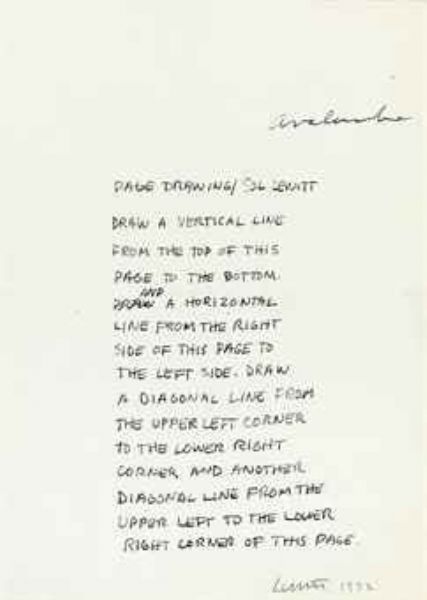 avalanche
PAGE DRAWING/ SOL LEWITT
DRAW A VERTICAL LINE
FROM THE TOP OF THIS
PAGE TO THE BOTTOM
AND
DRAW A HORIZONTAL
LINE FROM THE RIGHT
SIDE OF THIS PAGE TO
THE LEFT SIDE. DRAW
A DIAGONAL LINE FROM
THE UPPER LEFT CORNER
TO THE LOWER RIGHT
CORNER AND ANOTHER
DIAGONAL LINE FROM THE
UPPER LEFT TO THE LOWER
RIGHT CORNER OF THIS PAGE.
LEWITT